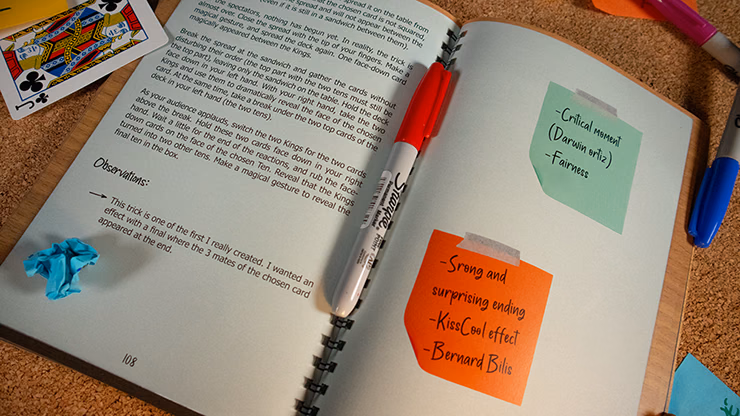 the spectators, nothing has begun yet. In reality, the trick
almost over. Close the spread with the tip of your fingers. Make a
magical gesture, and spread the deck again. One face-down card
magically appeared between the Kings.
Break the spread at the sandwich and gather the cards without
disturbing their order (the top part with the two tens must still be
the top part), leaving only the sandwich on the table. Hold the deck
face down in your left hand. With your right hand, take the two
Kings and use them to dramatically reveal the face of the chosen
card. At the same time, take a break under the two top cards of the
deck in your left hand (the two tens).
As your audience applauds, switch the two Kings for the two cards
above the break. Hold these two cards face down in your right
hand. Wait a little for the end of the reactions, and rub the face-
down cards on the face of the chosen Ten. Reveal that the Kings
turned into two other tens. Make a magical gesture to reveal the
final ten in the box.
Observations:
This trick is one of the first I really created. I wanted an
effect with a final where the 3 mates of the chosen card
appeared at the end.
108
J
Sharpie
-Critical moment
(Darwin ortiz)
-Fairness
-Srong and
surprising ending
-KissCool effect
-Bernard Bilis